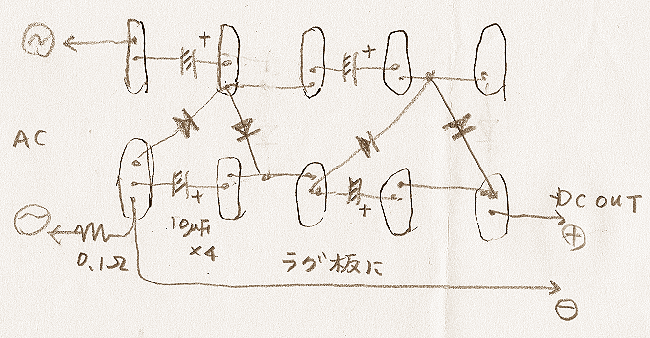 +
+
AC
+
+
DC OUT
+
10μF
×4
0.1Ω
ラグ板に
−